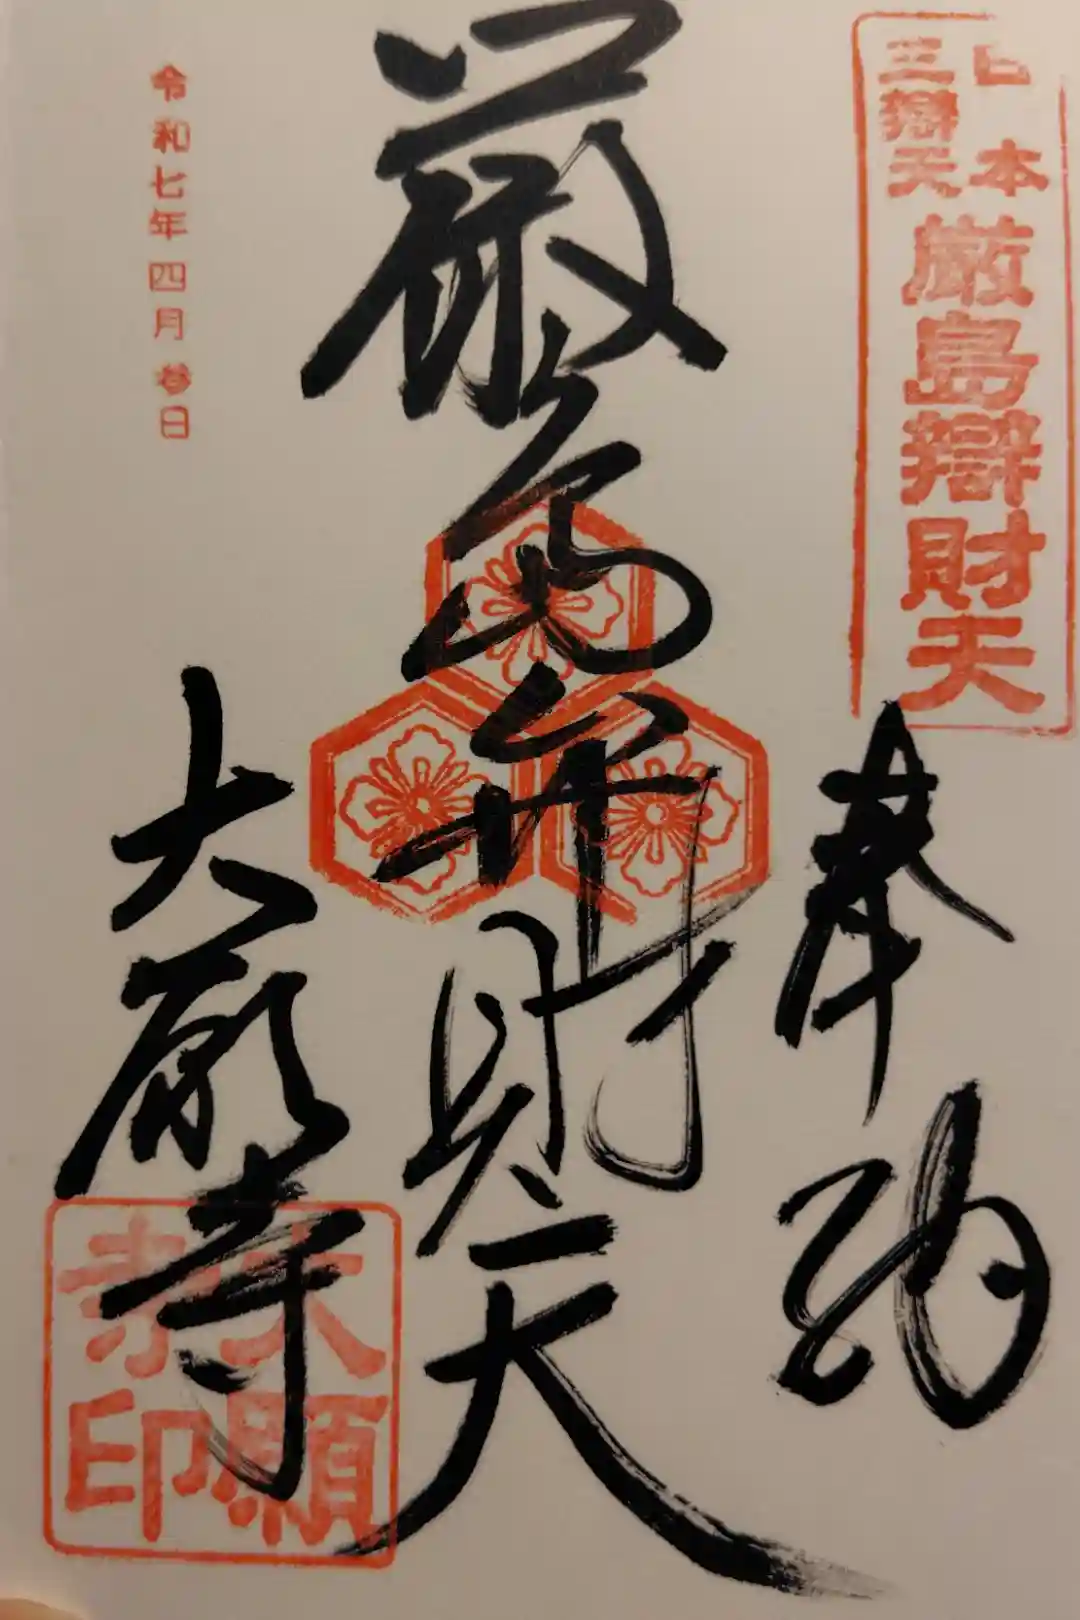 日本
三辯天
厳島辯財天
奉納
厳島弁財天
大願寺
大願
寺印
令和七年四月参日